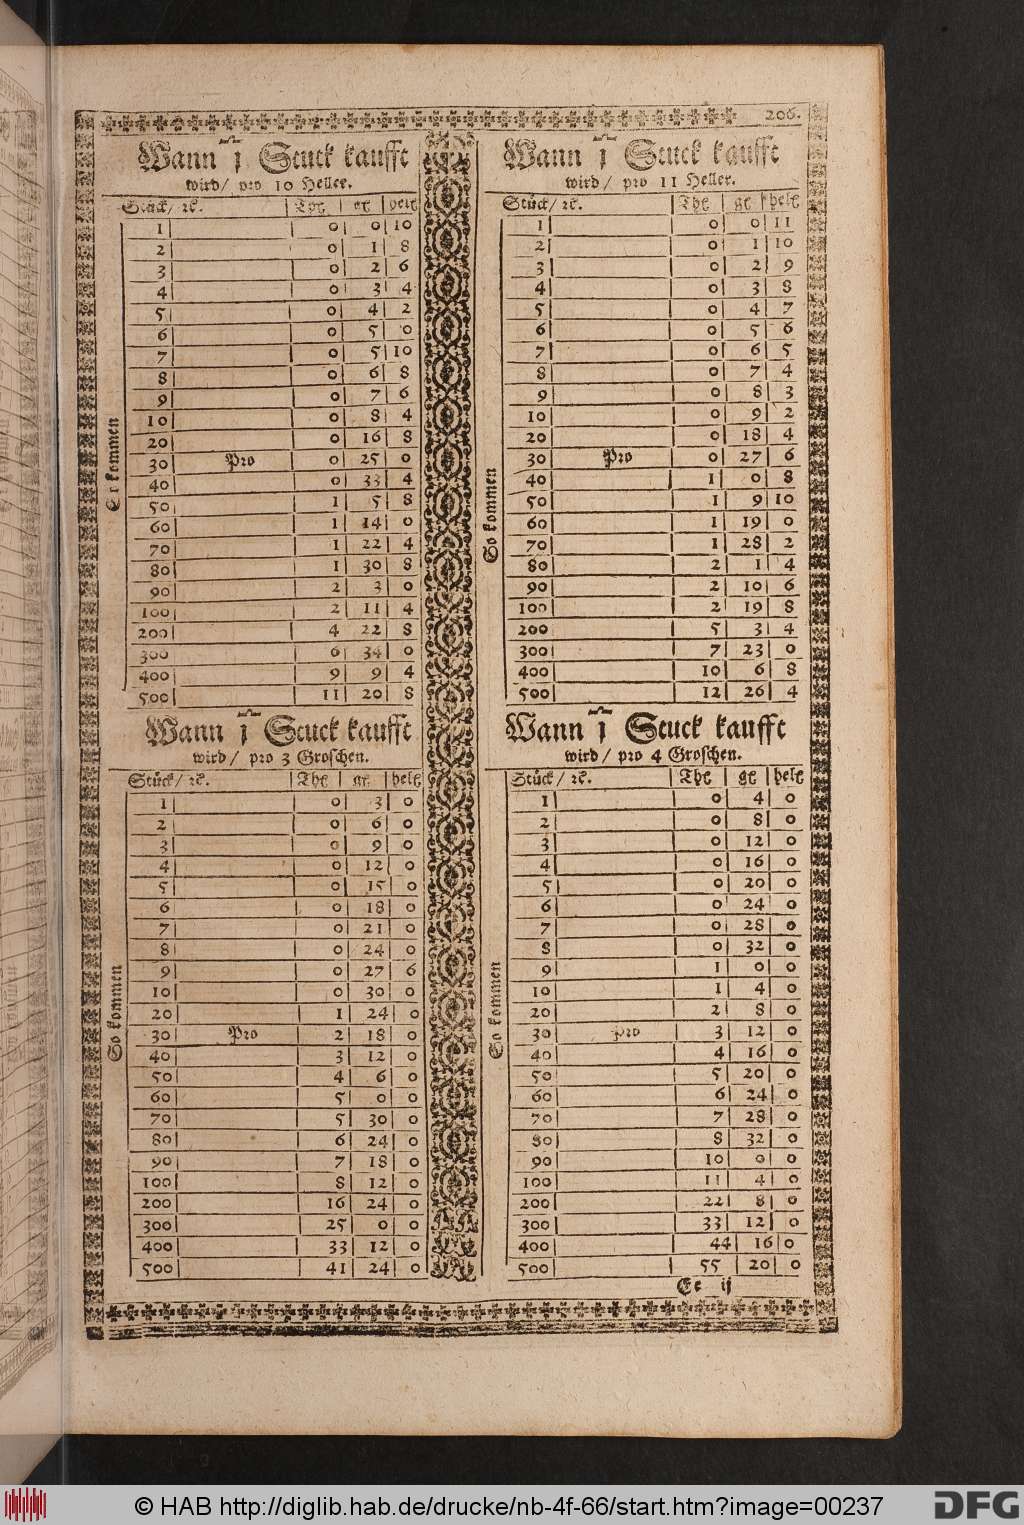 206.
Wann 1 Stuck kaufft
wird/ pro 10 Heller.
Stuck/ ꝛc. Thl gr hell
1 0 0 10
2 0 1 8
3 0 2 6
4 0 3 4
5 0 4 2
6 0 5 0
7 0 5 10
8 0 6 8
9 0 7 6
10 0 8 4
20 0 16 8
30 Pro 0 25 0
40 0 33 4
50 1 5 8
60 1 14 0
70 1 22 4
80 1 30 8
90 2 3 0
100 2 11 4
200 4 22 8
300 6 34 0
400 9 9 4
500 11 20 8
So kommen
Wann 1 Stuck kaufft
wird/ pro 11 Heller.
Stück/ ꝛc. Thl gr hell
1 0 0 11
2 0 1 10
3 0 2 9
4 0 3 8
5 0 4 7
6 0 5 6
7 0 6 5
8 0 7 4
9 0 8 3
10 0 9 2
20 0 18 4
30 Pro 0 27 6
40 1 0 8
50 1 9 10
60 1 19 0
70 1 28 2
80 2 1 4
90 2 10 6
100 2 19 8
200 5 3 4
300 7 23 0
400 10 6 8
500 12 26 4
So kommen
Wann 1 Stuck kaufft
wird/ pro 3 Groschen.
Stück/ ꝛc. Thl gr hell
1 0 3 0
2 0 6 0
3 0 9 0
4 0 12 0
5 0 15 0
6 0 18 0
7 0 21 0
8 0 24 0
9 0 27 6
10 0 30 0
20 1 24 0
30 Pro 2 18 0
40 3 12 0
50 4 6 0
60 5 0 0
70 5 30 0
80 6 24 0
90 7 18 0
100 8 12 0
200 16 24 0
300 25 0 0
400 33 12 0
500 41 24 0
So kommen
Wann 1 Stuck kaufft
wird/ pro 4 Groschen.
Stück/ ꝛc. Thl gr hell
1 0 4 0
2 0 8 0
3 0 12 0
4 0 16 0
5 0 20 0
6 0 24 0
7 0 28 0
8 0 32 0
9 1 0 0
10 1 4 0
20 2 8 0
30 pro 3 12 0
40 4 16 0
50 5 20 0
60 6 24 0
70 7 28 0
80 8 32 0
90 10 0 0
100 11 4 0
200 22 8 0
300 33 12 0
400 44 16 0
500 55 20 0
So kommen
Ee ij
© HAB http://diglib.hab.de/drucke/nb-4f-66/start.htm?image=00237
DFG